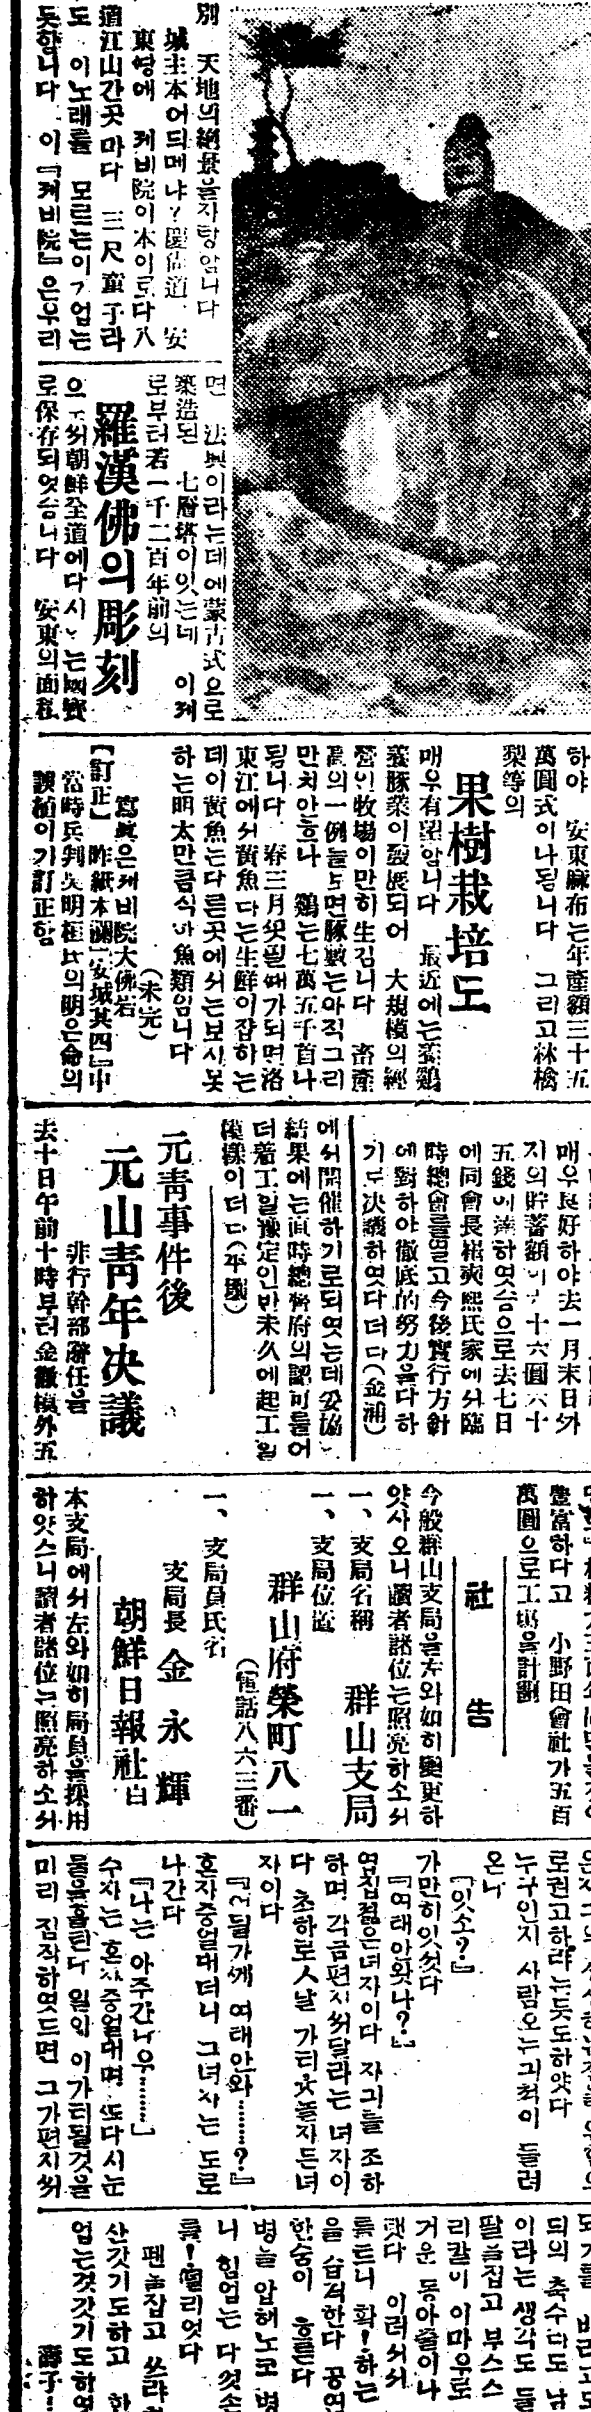 別 天地의絕景을자랑합니다
城主本어듸메냐? 慶尙道、安
東땅에 제비院이本이로다八
道江山간곳마다 三尺童子라
도 이노래를 모르는이가업는
듯합니다 이『제비院』은우리
면 法興이라는데에蒙古式으로
築造된 七層塔이잇는데 이제
로부터若一千二百年前의
羅漢佛의彫刻
으로서朝鮮全道에다시업는國寶
로保存되엇습니다 安東의面積
하야 安東麻布는年產額三十五
萬圓式이나됩니다 그리고林檎
梨等의
果樹栽培도
매우有望합니다 最近에는養鷄
養豚業이發展되어 大規模의經
營인牧場이만히生깁니다 畜產
品의一例를보면豚數는아직그리
만치안흐나 鷄는七萬五千首나
됩니다 春三月꼿필때가되면洛
東江에서黃魚라는生鮮이잡히는
데이黃魚는다른곳에서는보지못
하는明太만큼식한魚類임니다
(未完)
寫眞은제비院大佛岩
【訂正】 昨紙本欄「安城其四」中
當時兵判吳明恒氏의明은命의
誤植이기訂正함
매우良好하야去一月末日外
지의貯蓄額이 十六圓六十
五錢에達하엿슴으로去七日
에同會長 熙氏家에서臨
時總會를열고今後實行方針
에對하야徹底的努力을다하
기로决議하엿다더라(金浦)
에서開催하기로되엿는데妥協
結果에는直時總督府의認可를어
더着工일豫定인바未久에起工될
模樣이더라(平壤)
元靑事件後
元山靑年决議
非行幹部辭任을
去十日午前十時부터金 外五
豐富하다고 小野田會社가五百
萬圓으로工場을計劃
社告
今般群山支局을左와如히變更하
얏사오니讀者諸位는照亮하소서
一、支局名稱
群山支局
一、支局位置
群山府榮町八一
(電話八六三番)
一、支局員氏名
支局長 金永輝
朝鮮日報社白
本支局에서左와如히局員을採用
하얏스니讀者諸位는照亮하소서
로권고하랴는듯도하얏다
누구인지 사람오는긔척이 들려
온다
『잇소?』
가만히잇섯다
『여태안왓나?』
엽집젊은녀자이다 자긔를 조하
하며 각금편지써달라는 녀자이
다 초하로人날 가티윳놀자든녀
자이다
『어딜가게 여태안와………?』
혼자중얼대더니 그녀자는 도로
나간다
『나는 아주간다우………』
수자는 혼자중얼대며 또다시눈
물을흘린다 일이 이가티될것을
미리 짐작하엿드면 그가편지써
되기를 바라고도
듸의 축수라도 남
이라는 생각도 들
딸을집고 부스스
리칼이 이마우로
거운 동아줄이나
랫다 이러서서
를드니 확!하는
을 습격한다 공연
한숨이 흘른다
병을 압헤노코 병
니 힘업는 다섯손
를!떨리엇다
펜을잡고 쓰랴하
산갓기도하고 한
업는것갓기도하엿
壽子…